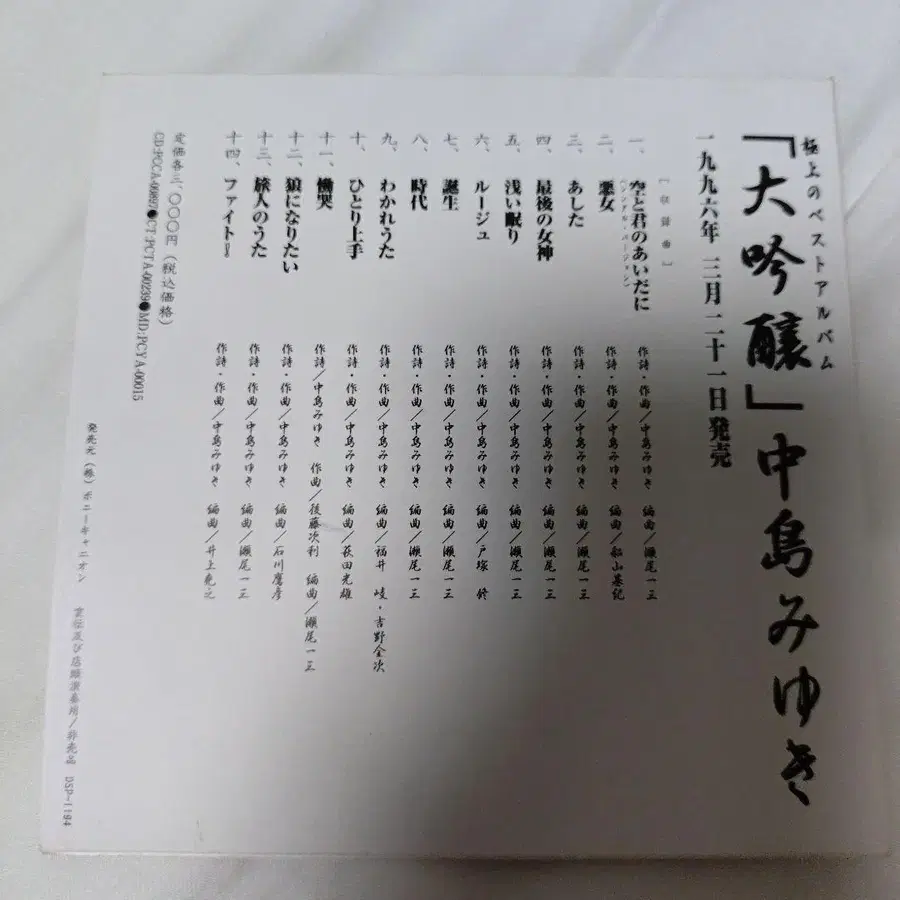 極上のベストアルバム
「大吟醸」中島みゆき
一九九六年 三月二十一日発売
［収録曲］
一、空と君のあいだに 作詩・作曲／中島みゆき 編曲／瀬尾一三
（シングル・バージョン）
二、悪女 作詩・作曲／中島みゆき 編曲／船山基紀
三、あした 作詩・作曲／中島みゆき 編曲／瀬尾一三
四、最後の女神 作詩・作曲／中島みゆき 編曲／瀬尾一三
五、浅い眠り 作詩・作曲／中島みゆき 編曲／瀬尾一三
六、ルージュ 作詩・作曲／中島みゆき 編曲／戸塚 修
七、誕生 作詩・作曲／中島みゆき 編曲／瀬尾一三
八、時代 作詩・作曲／中島みゆき 編曲／瀬尾一三
九、わかれうた 作詩・作曲／中島みゆき 編曲／福井 峻・吉野金次
十、ひとり上手 作詩・作曲／中島みゆき 編曲／萩田光雄
十一、慟哭 作詩／中島みゆき 作曲／後藤次利 編曲／瀬尾一三
十二、狼になりたい 作詩・作曲／中島みゆき 編曲／石川鷹彦
十三、旅人のうた 作詩・作曲／中島みゆき 編曲／瀬尾一三
十四、ファイト！ 作詩・作曲／中島みゆき 編曲／井上堯之
定価各三、〇〇〇円（税込価格）
CD:PCCA-00897●CT:PCTA-00239●MD:PCYA-00015
発売元（株）ポニーキャニオン 宣伝及び店頭演奏用／非売品 DSP-1194